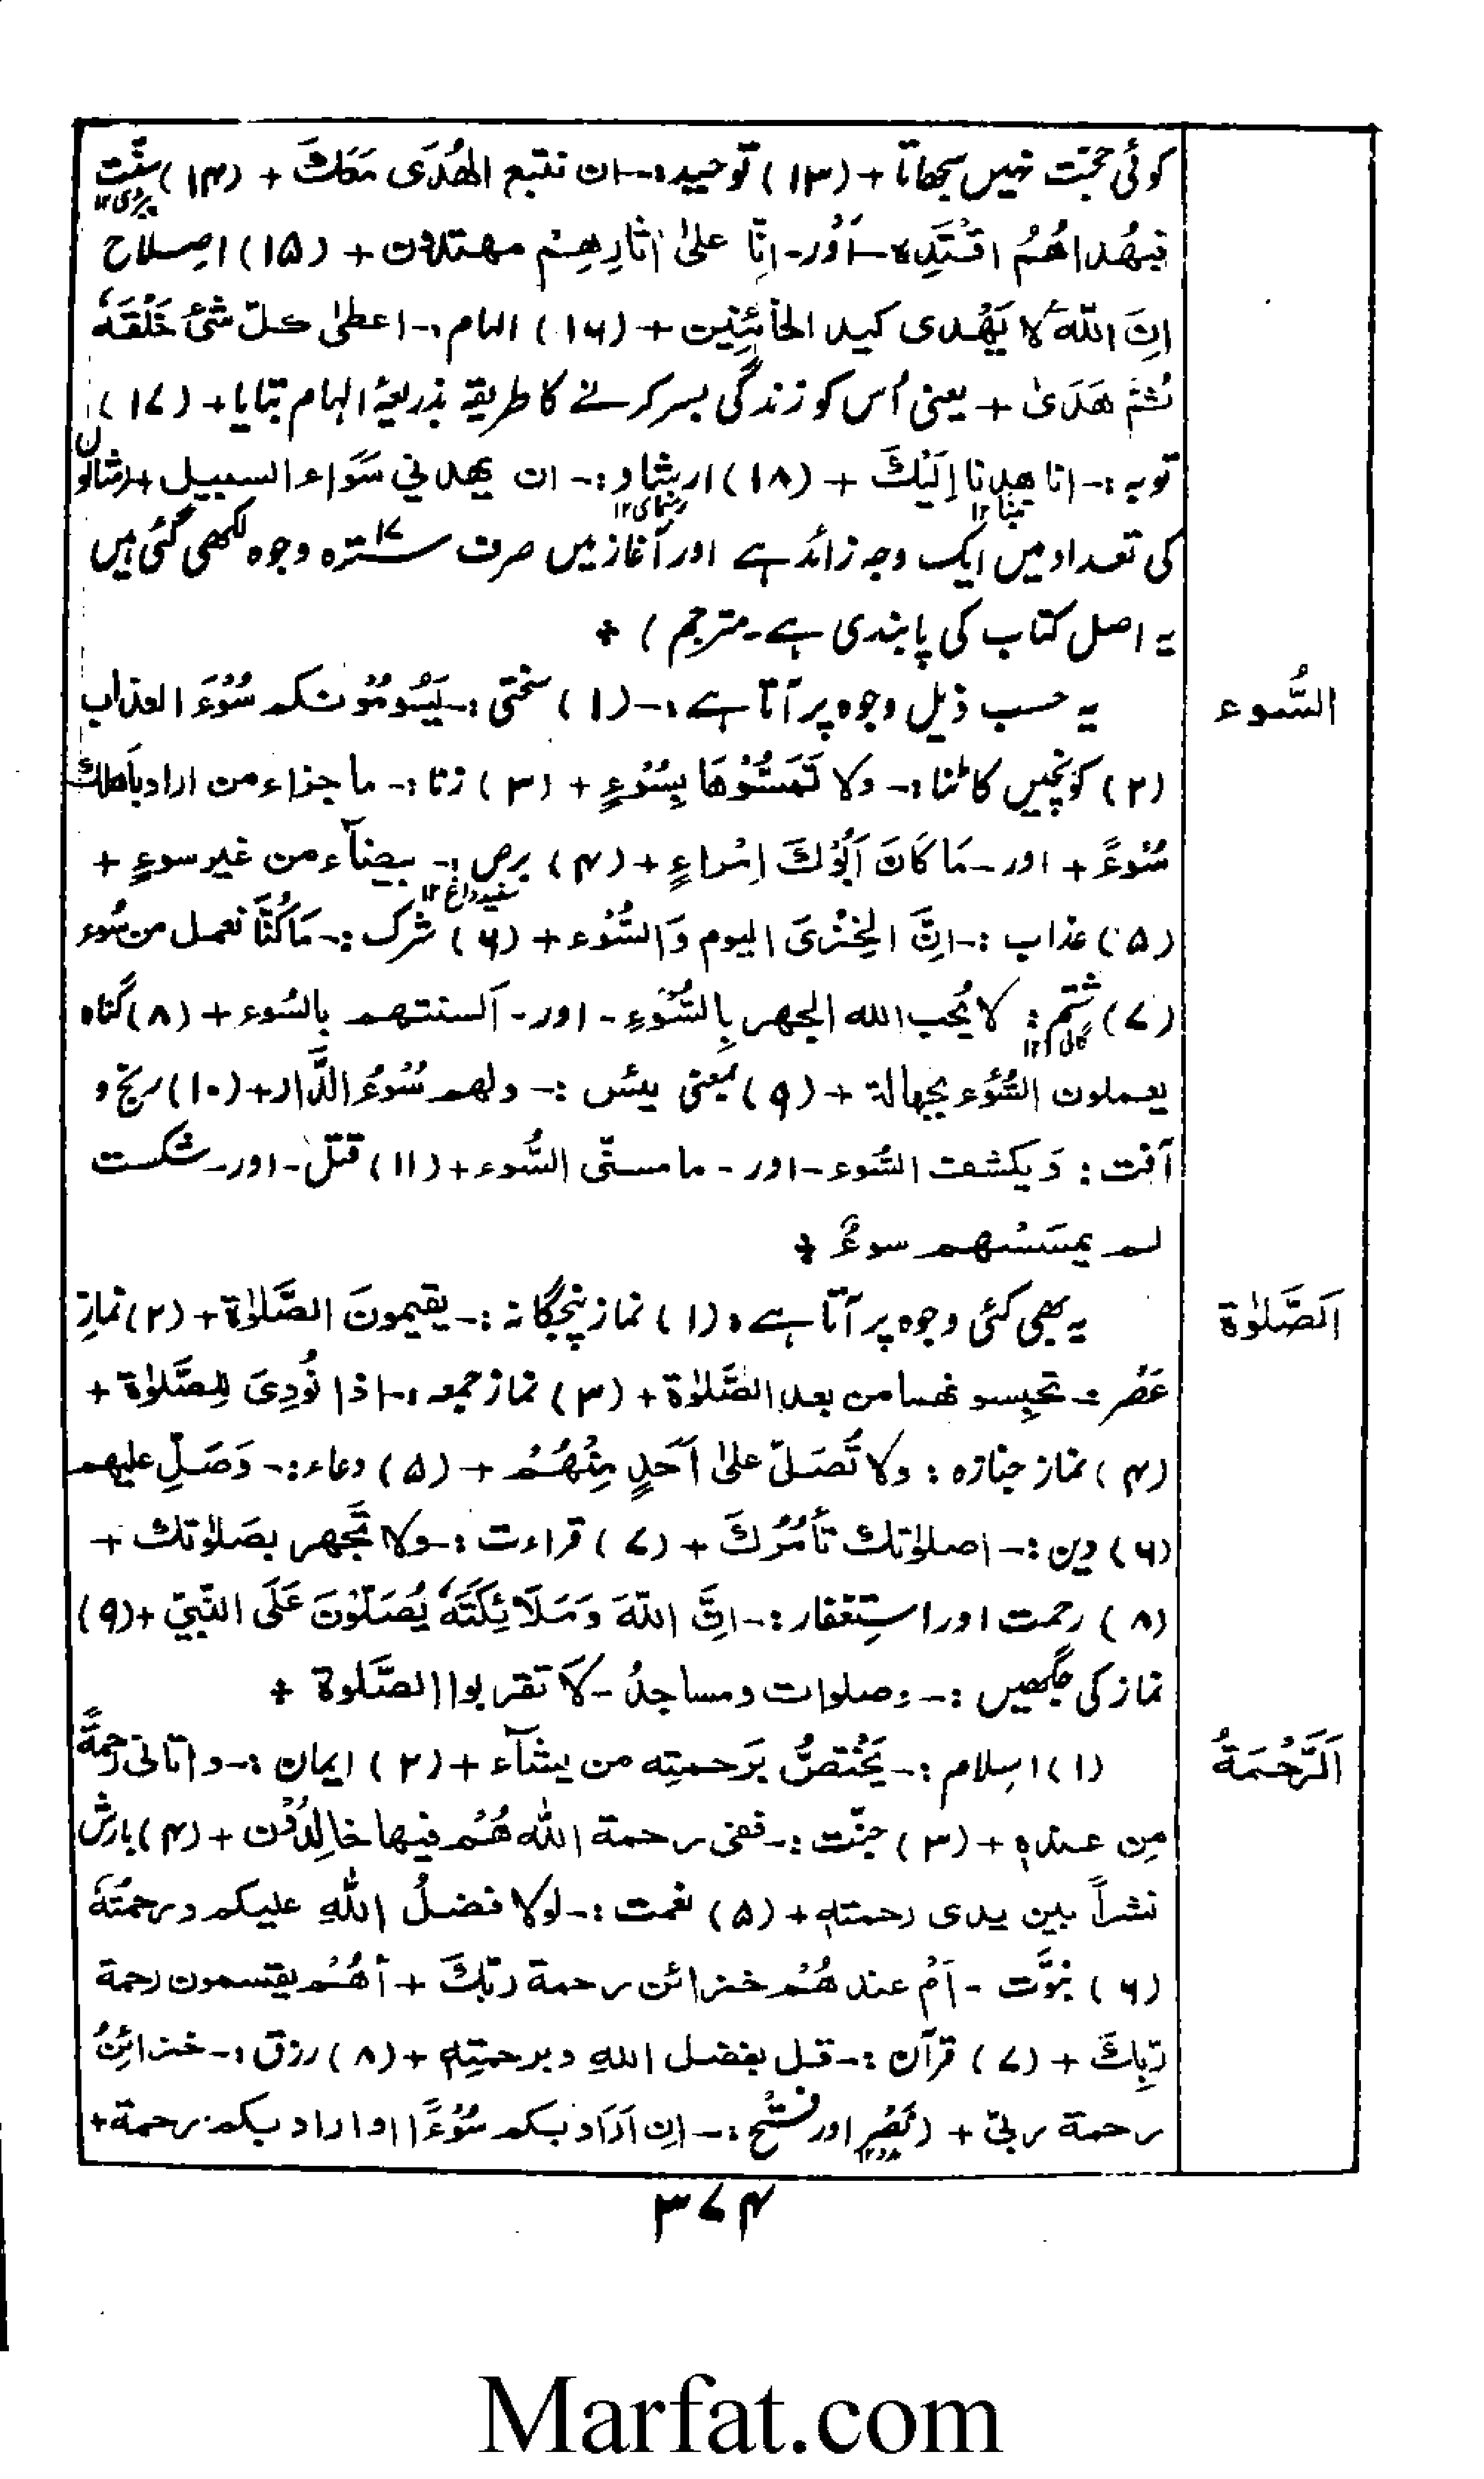 کوئی حجت نہیں سجھاتا + (۱۳) توحید:- ان نتبع الھُدَی مَعَكَ + (۱۴) سنّت
پیروی ۱۲
فبھُداھُمُ اقْتَدِہ - اَوْر - انّا علیٰ اٰثارِھِمْ مھتدون + (۱۵) اصلاح
اِنَ اللّٰہَ لا یَھْدی کید الخائِنِین + (۱۶) الہام :- اعطیٰ کلّ شیءٍ خَلْقَہٗ
ثُمَّ ھَدَیٰ + یعنی اُس کو زندگی بسر کرنے کا طریقہ بذریعۂ الہام بتایا + (۱۷)
توبہ :- انا ھدنا اِلَیْكَ + (۱۸) ارشاد :- ان یھدنی سَوَاء السبیل + (مثالوں
رہنمائی ۱۲
کی تعداد میں ایک وجہ زائد ہے اور آغاز میں صرف ۱۷ سترہ وجوہ لکھی گئی ہیں
یہ اصل کتاب کی پابندی ہے - مترجم) +
السُّوء
یہ حسب ذیل وجوہ پر آتا ہے :- (۱) سختی :- یَسُومُوْنکم سُوْءَ العذاب
(۲) کونچیں کاٹنا :- ولا تَمَسُّوْھَا بِسُوْءٍ + (۳) زنا :- ما جزاء من اراد باَھلك
سُوْءً + اور - مَا کَانَ اَبُوْكَ امْراءٍ + (۴) برص :- بیضآء من غیر سوءٍ +
سفید داغ ۱۲
(۵) عذاب :- انَّ الخِزْیَ الیوم وَالسُّوْء + (۶) شرک :- مَا کُنَّا نعمل من سُوء
(۷) شتم : لا یُحب اللہ الجھر بِالسُّوْءِ - اور - اَلسنتھم بالسُوء + (۸) گناہ
گالی ۱۲
یعملون السُّوْء بجھالة + (۹) بمعنی بئس :- ولھم سُوْءُ الدَّار + (۱۰) رنج و
آفت : وَیکشف السُّوء - اور - ما مسنّی السُّوء + (۱۱) قتل - اور - شکست
لم یمسَسْھم سوءٌ +
اَلصَّلوٰة
یہ بھی کئی وجوہ پر آتا ہے : (۱) نماز پنجگانہ :- یقیمونَ الصَّلوٰة + (۲) نمازِ
عَصْر :- تحبِسونھما من بعد الصَّلوٰة + (۳) نماز جمعہ :- اذا نُودِیَ لِلصَّلوٰة +
(۴) نماز جنازہ : ولا تُصَلّ علیٰ اَحَدٍ مِنْھُمْ + (۵) دعاء :- وَصَلِّ علیھم
(۶) دین :- اصلوٰتك تأمُرُكَ + (۷) قراءت :- ولا تَجْھر بصَلوٰتك +
(۸) رحمت اور استِغفار :- انَّ اللّٰہَ وَمَلَائِکَتَہٗ یُصَلّوْنَ عَلَی النَّبِیّ + (۹)
نماز کی جگہیں :- وصلوات ومساجدُ - لَا تقربوا الصَّلوة +
اَلرَّحْمَةُ
(۱) اسلام :- یَخْتصُّ بَرَحمتِه من یشآء + (۲) ایمان :- واٰتانی رَحمةً
مِن عندہٖ + (۳) جنّت :- ففی رحمة اللّٰه ھُمْ فیھا خالِدُوْن + (۴) بارش
نشراً بین یدی رحمتهٖ + (۵) نعمت :- لولا فضلُ اللّٰهِ علیکم ورحمَتُهٗ
(۶) نبوَّت - اَمْ عندھُمْ خزائن رحمة ربّكَ + أھُمْ یقسمون رحمة
ربِّكَ + (۷) قرآن :- قل بفضل اللهِ وبرحمتِهٖ + (۸) رزق :- خزائِنُ
رحمة ربیّ + (نَصْر اور فتْح :- اِن اَرَاد بکم سُوْءًا او اراد بکم رحمة +
۳۷۴
Marfat.com